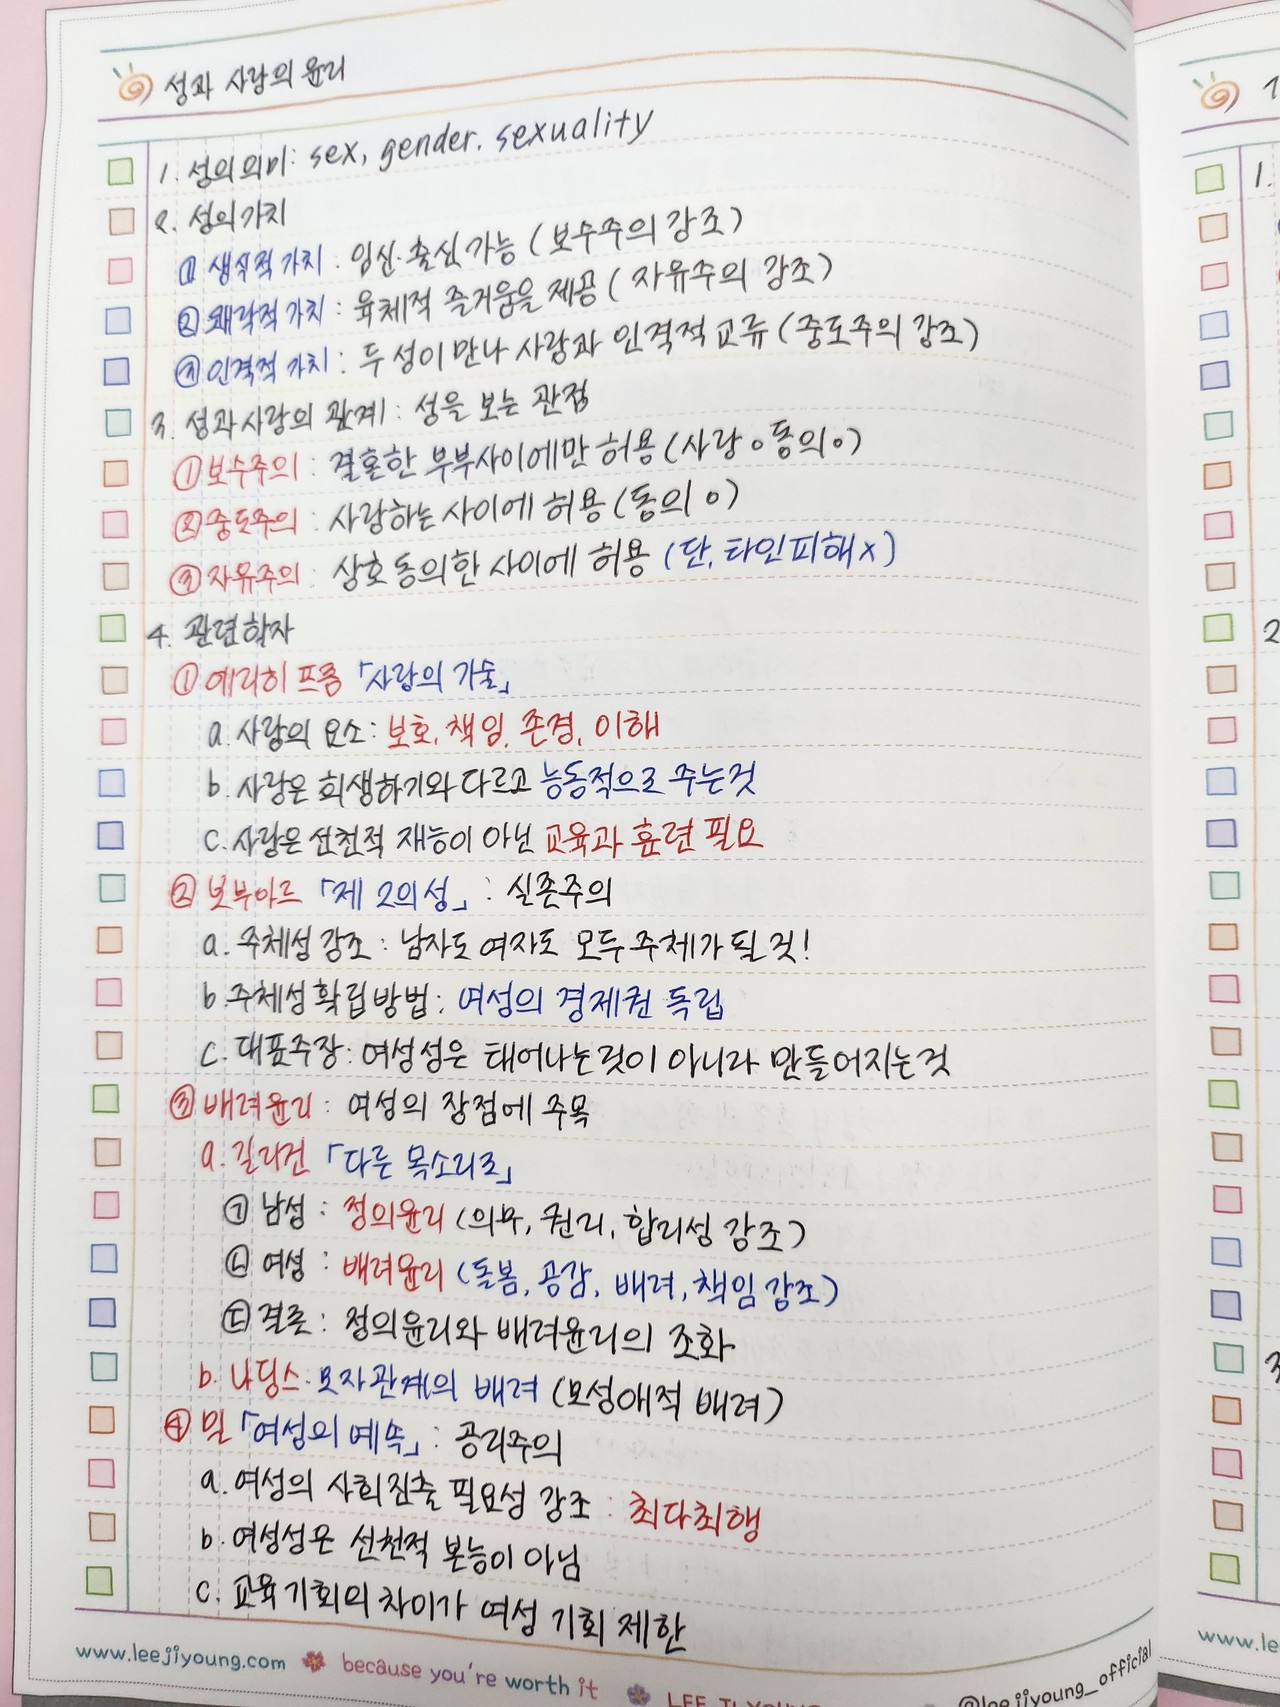 성과 사랑의 윤리
1. 성의 의미: sex, gender. sexuality
2. 성의 가치
① 생식적 가치 : 임신·출산 가능 (보수주의 강조)
② 쾌락적 가치 : 육체적 즐거움을 제공 ( 자유주의 강조)
③ 인격적 가치 : 두 성이 만나 사랑과 인격적 교류 (중도주의 강조)
3. 성과 사랑의 관계 : 성을 보는 관점
① 보수주의 : 결혼한 부부사이에만 허용 (사랑 o 동의 o)
② 중도주의 : 사랑하는 사이에 허용 (동의 o)
③ 자유주의 : 상호 동의한 사이에 허용 (단, 타인피해 x)
4. 관련학자
① 에리히 프롬 「사랑의 기술」
a. 사랑의 요소 : 보호, 책임, 존경, 이해
b. 사랑은 희생하기와 다르고 능동적으로 주는것
c. 사랑은 선천적 재능이 아닌 교육과 훈련 필요
② 보부아르 「제 2의 성」 : 실존주의
a. 주체성 강조 : 남자도 여자도 모두 주체가 될 것!
b. 주체성 확립 방법 : 여성의 경제권 독립
c. 대표주장 : 여성성은 태어나는것이 아니라 만들어지는것
③ 배려윤리 : 여성의 장점에 주목
a. 길리건 「다른 목소리로」
㉠ 남성 : 정의윤리 (의무, 권리, 합리성 강조)
㉡ 여성 : 배려윤리 (돌봄, 공감, 배려, 책임 강조)
㉢ 결론 : 정의윤리와 배려윤리의 조화
b. 나딩스 : 모자관계의 배려 (모성애적 배려)
④ 밀 「여성의 예속」 : 공리주의
a. 여성의 사회진출 필요성 강조 : 최다최행
b. 여성성은 선천적 본능이 아님
c. 교육 기회의 차이가 여성 기회 제한
www.leejiyoung.com because you're worth it LEE JI YOUNG @leejiyoung_official
1.
2
3
www.le